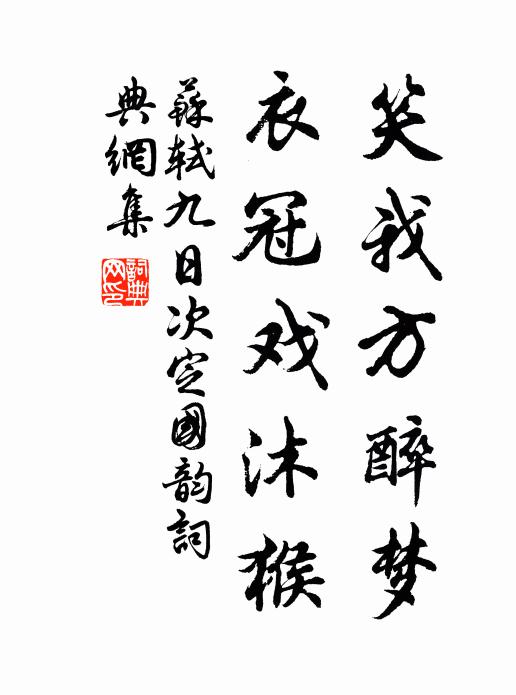 笑我方醉梦
衣冠戏沐猴
蘇軾九日次定國韵詞
典網集
詞典网印